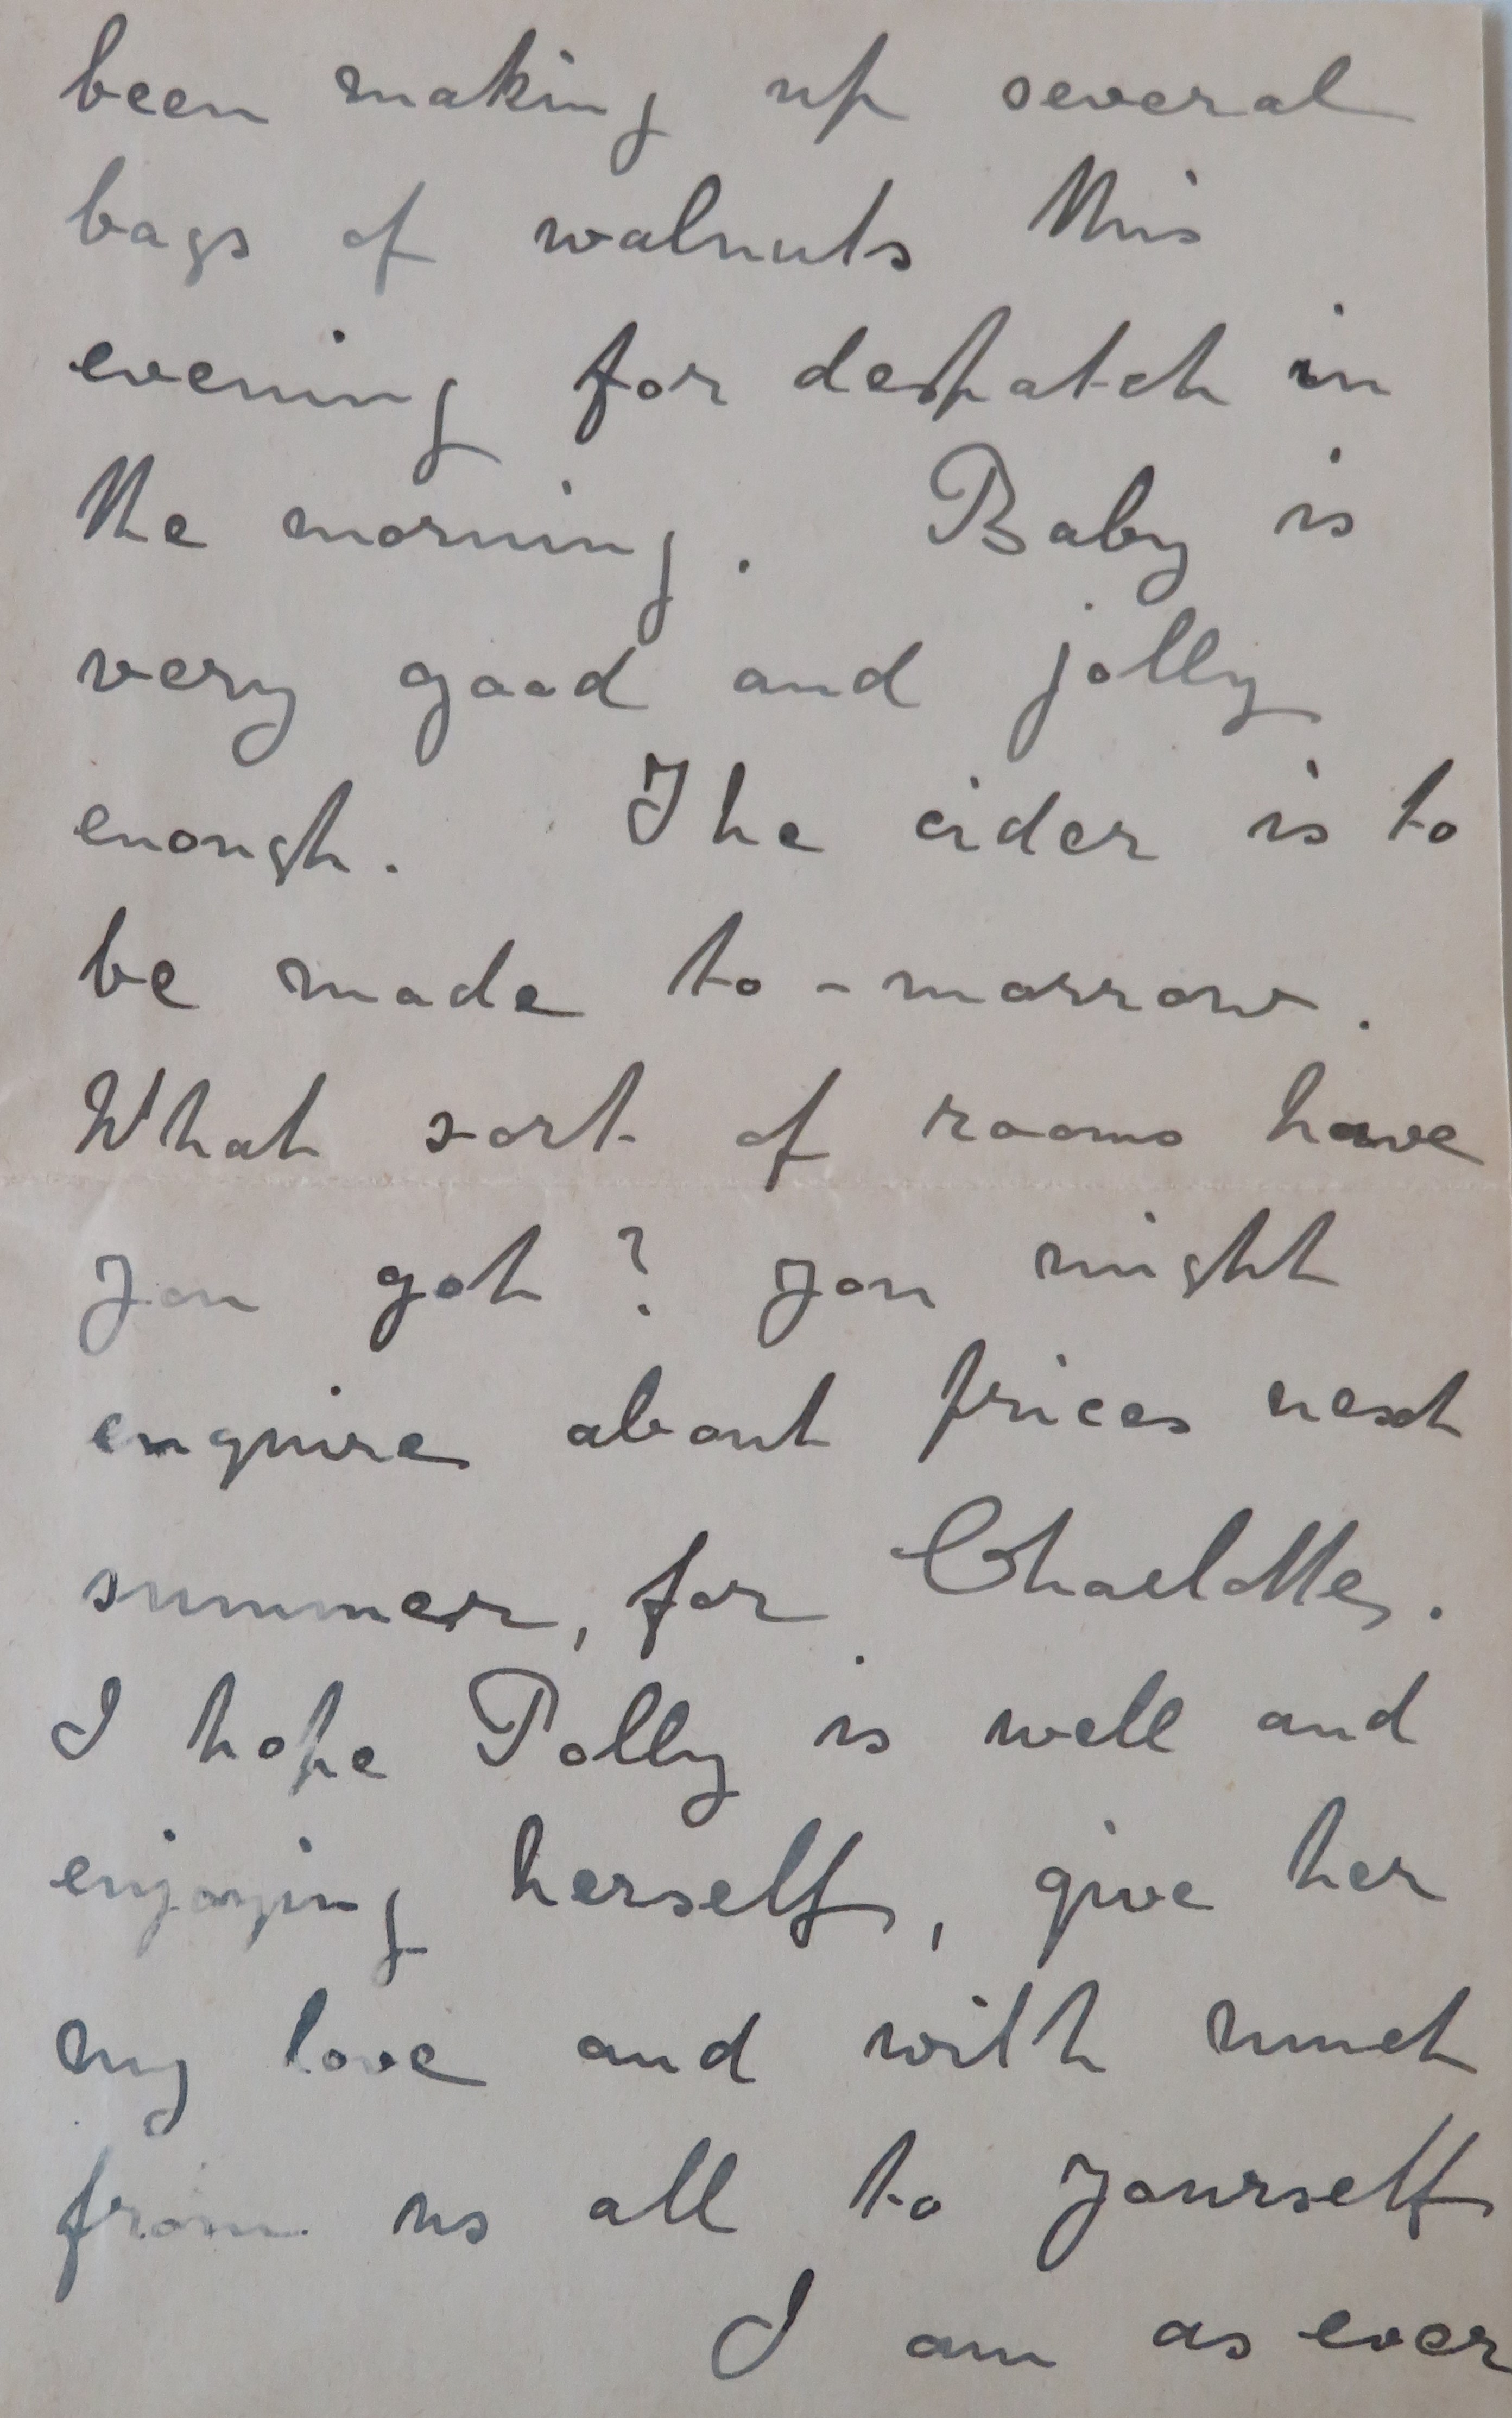 been making up several
bags of walnuts this
evening for despatch in
the morning. Baby is
very good and jolly
enough. The cider is to
be made to-morrow.
What sort of rooms have
you got? You might
enquire about prices next
summer, for Charlotte.
I hope Polly is well and
enjoying herself, give her
my love and with much
from us all to yourself
I am as ever